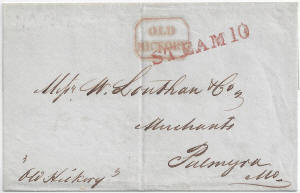 OLD
HICKORY
STEAM 10
Messrs W. Louthan & Co
Merchants
Palmyra
Mo.
"Old Hickory"